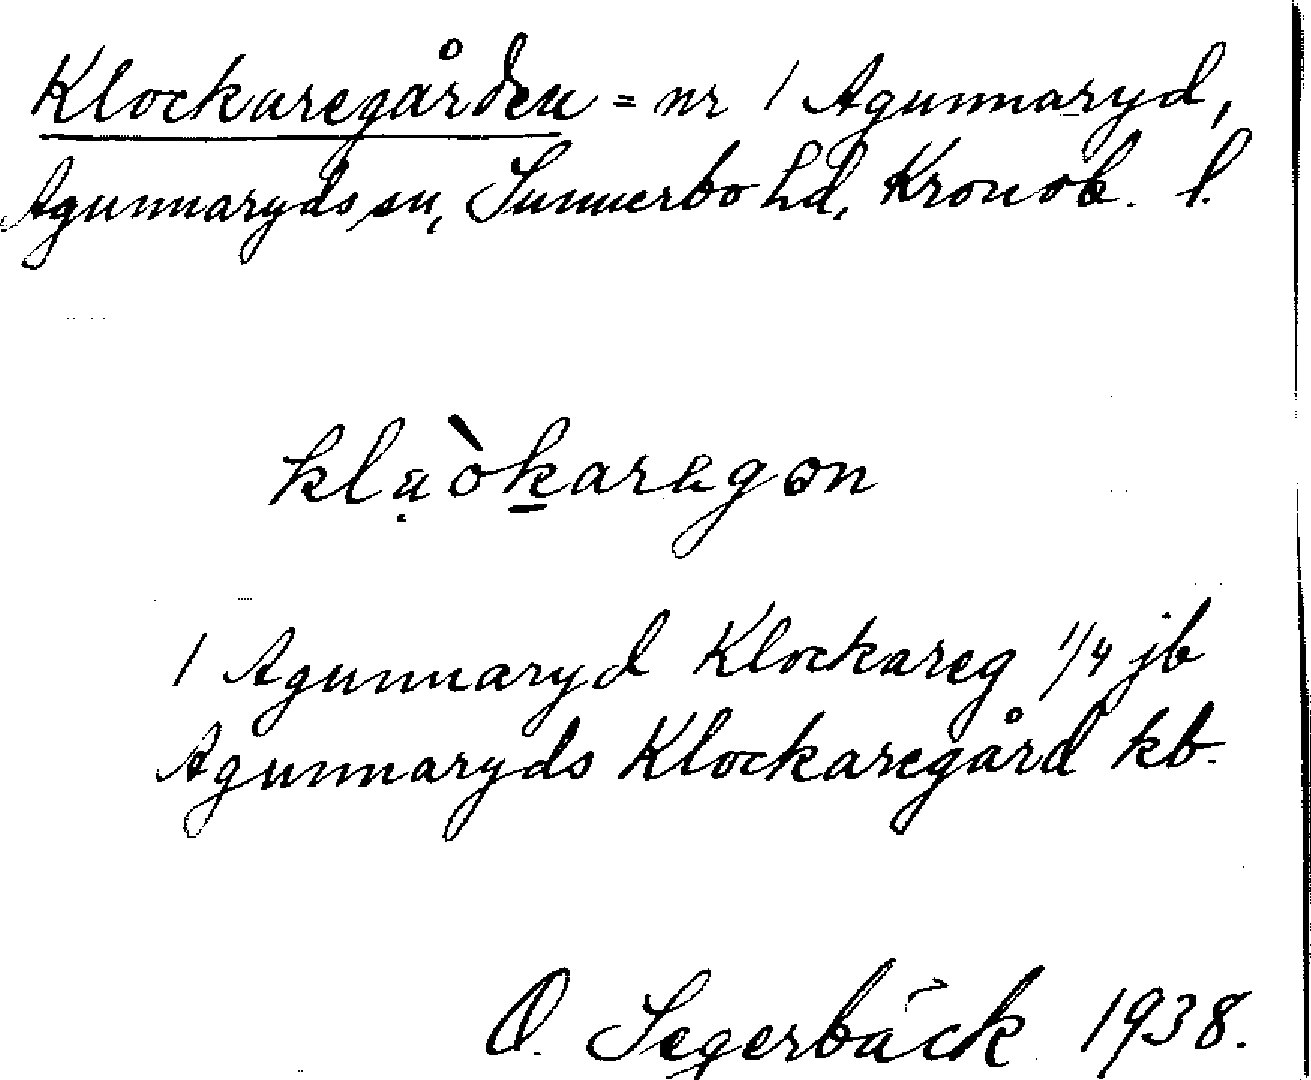 Klockaregården = nr 1 Agunnaryd,
Agunnaryds sn, Sunnerbo hd, Kronob. l.
1 Agunnaryd Klockareg 1/4 jb
Agunnaryds Klockaregård kb.
O. Segerbäck 1938.